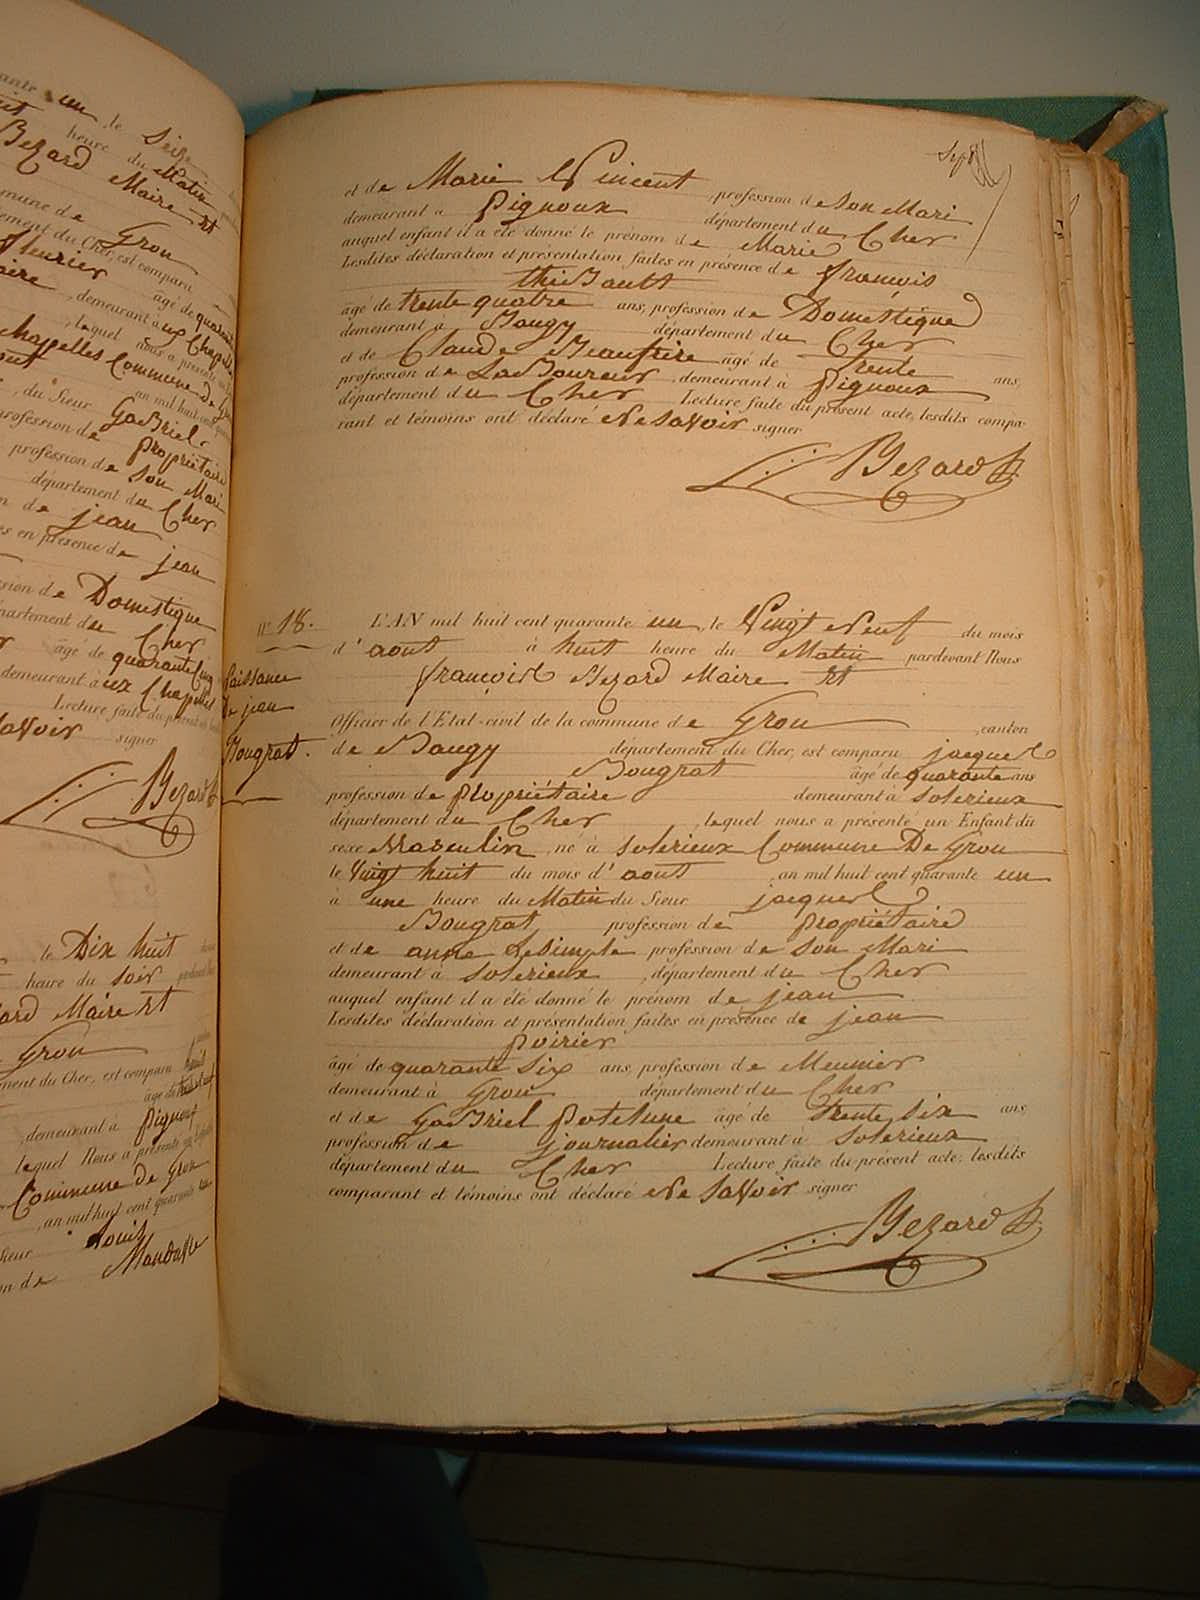 un, le Seize
heure du Matin
Bezard Maire Et
mune de Grou
ement du Cher, est comparu
fleurier âgé de
aire, demeurant aux
, lequel nous a
chappelles Commune de
out an mil huit cent
, du Sieur Gabriel
profession de propriétaire
profession de Son Mari
département du Cher
de jean
en présence de jean
sion de Domestique
partement du Cher
âgé de quarante cinq
demeurant aux Chapelles
Lecture faite du
savoir signer
Bezard
le Dix huit
heure du soir
ard Maire Et
Grou
ment du Cher, est comparu
âgé de
, demeurant à
lequel Nous a présenté
Commune de Grou
, an mil huit cent quarante un
Sieur Louis
n de
et de Marie Vincent, profession de Son Mari
demeurant à Pignoux département du Cher
auquel enfant il a été donné le prénom de Marie
Lesdites déclaration et présentation faites en présence de françois
thibault
âgé de trente quatre ans, profession de Domestique
demeurant à Baugy département du Cher
et de Claude Beaufrire âgé de trente ans,
profession de Laboureur, demeurant à Pignoux
département du Cher Lecture faite du présent acte, lesdits compa-
rant et témoins ont déclaré Ne Savoir signer
Bezard
N° 18.
Naissance
de jean
Bougrat.
L'AN mil huit cent quarante un, le Vingt Neuf du mois
d'aout à huit heure du Matin pardevant Nous
françois Bezard Maire Et
Officier de l'Etat-civil de la commune de Grou, canton
de Baugy département du Cher, est comparu jacques
Bougrat âgé de quarante ans
profession de propriétaire demeurant à Solerieux
département du Cher, lequel nous a présenté un Enfant du
sexe Masculin, né à Solerieux Commune De Grou
le Vingt huit du mois d'aout, an mil huit cent quarante un
à une heure du Matin du Sieur jacques
Bougrat profession de propriétaire
et de anne Lesimple profession de Son Mari
demeurant à Solerieux, département du Cher
auquel enfant il a été donné le prénom de jean
Lesdites déclaration et présentation faites en présence de jean
poirier
âgé de quarante Six ans, profession de Meunier
demeurant à Grou département du Cher
et de Gabriel potelune âgé de trente Six ans
profession de journalier demeurant à Solerieux
département du Cher Lecture faite du présent acte, lesdits
comparant et témoins ont déclaré Ne Savoir signer
Bezard